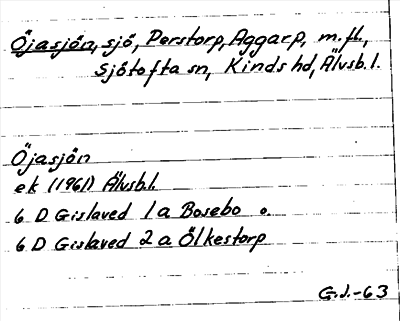 Öjasjön, sjö, Perstorp, Aggarp, m.fl.,
Sjötofta sn, Kinds hd, Älvsb.l.
Öjasjön
ek (1961) Älvsb.l.
6 D Gislaved 1a Bosebo o.
6 D Gislaved 2a Ölkestorp
G.J.-63